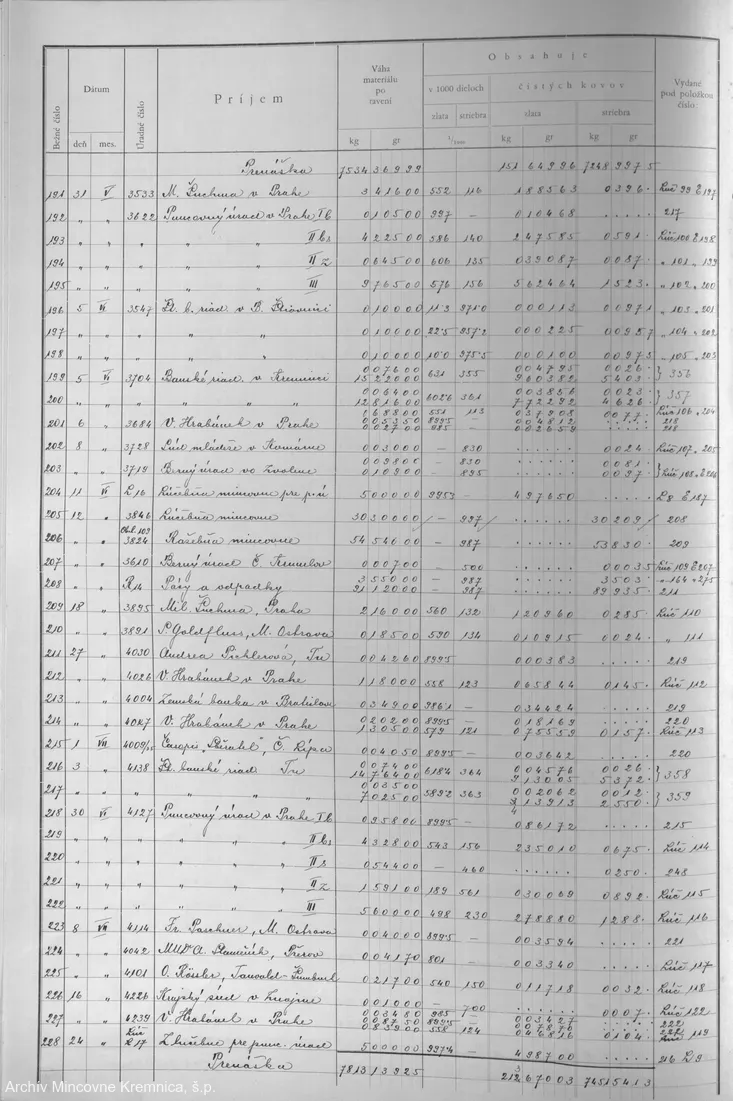 Bežné číslo
Dátum
deň mes.
Úradné číslo
Príjem
Váha materiálu po tavení
kg gr
Obsahuje
v 1000 dieloch
zlata striebra
1/1000
čistých kovov
zlata striebra
kg gr kg gr
Vydané pod položkou číslo:
Prenáška 7534 36999 151 64996 7248 9975
191 31 V 3533 M. Puchma v Prahe 341600 552 116 188563 0396 Lúč 99 E 197
192 " " 3622 Puncovný úrad v Prahe I b 010500 997 — 010468 ..... 217
193 " " " " " II b 422500 586 140 247585 0591 Lúč 100 E 198
194 " " " " " II z 064500 606 135 039087 0087 " 101 " 199
195 " " " " " III 976500 576 156 562464 1523 " 102 " 200
196 5 VI 3547 Št. b. riad. v B. Štiavnici 010000 11·3 971·0 000113 0097 " 103 " 201
197 " " " " " 010000 22·5 957·2 000225 00957 " 104 " 202
198 " " " " " 010000 10·0 975·5 000100 00975 " 105 " 203
199 5 VI 3704 Banské riad. v Kremnici 007600 1522000 631 355 004795 960382 0026 5403 } 356
200 " " " 006400 1281600 602·6 361 003856 772292 0023 4626 } 357
068800 551 113 037908 0077 Lúč 106 " 204
201 6 " 3684 V. Hrabánek v Prahe 005350 002700 899·5 985 — 004812 002659 ..... 218 218
202 8 " 3728 003000 — 830 ...... 0024 Lúč 107 " 205
203 " " 3719 Berný úrad vo Zvolene 009800 010900 — 830 — 895 ...... 0081 0097 } Lúč 108 E 206
204 11 VI L 16 Lúčebňa mincovne pre p.ú 500000 995·3 — 497650 ..... L 8 E 187
205 12 " 3846 Lúčebňa mincovne 3030000 — 997 ...... 30209 208
206 " " Obl. 109 3824 Razebňa mincovne 5454000 — 987 ...... 53830 209
207 " " 3610 Berný úrad Č. Krumlov 000700 — 500 ...... 00035 Lúč 109 E 207
208 " " R 14 Pásy a odpadky 355000 9112000 — 987 — 987 ...... 3503 89935 " 164 " 275 211
209 18 " 3895 Mil. Puchma, Praha 216000 560 132 120960 0285 Lúč 110
210 " " 3891 P. Goldfluss, M. Ostrava 018500 590 134 010915 0024 " 111
211 27 " 4030 Andrea Pichlerová, Tu 004260 899·5 000383 ..... 219
212 " " 4026 V. Hrabánek v Prahe 118000 558 123 065844 0145 Lúč 112
213 " " 4004 Zemská banka v Bratislave 034900 986·1 — 034424 ..... 219
214 " " 4047 V. Hrabánek v Prahe 020200 130500 899·5 579 — 121 018169 075559 ..... 0157 220 Lúč 113
215 1 VII 4009 Časopis „Sberatel", Č. Rípa 004050 899·5 — 003642 ..... 220
216 3 " 4138 Št. banské riad. Tu 007400 1476400 618·4 364 004576 913005 0026 5372 } 358
217 " " " " " 003500 702500 589·2 363 002062 413913 0012 2550 } 359
218 30 VI 4127 Puncovný úrad v Prahe I b 095800 899·5 — 086172 ..... 215
219 " " " " " II b 432800 543 156 235010 0675 Lúč 114
220 " " " " " II s 054400 — 460 ...... 0250 248
221 " " " " " II z 159100 189 561 030069 0892 Lúč 115
222 " " " " " III 560000 498 230 278880 1288 Lúč 116
223 8 VII 4114 Fr. Paschner, M. Ostrava 004000 899·5 — 003594 ..... 221
224 " " 4042 MUDr A. , Přerov 004170 801 — 003340 ..... Lúč 117
225 " " 4101 O. Rössler, Tanvald-Šumburk 021700 540 150 011718 0032 Lúč 118
226 16 " 4226 Krajský súd v Znojme 001000 — 700 ...... 0007 Lúč 122
227 " " 4239 V. Hrabánek v Prahe 003480 008750 083900 985 899·5 558 — — 124 003427 007870 046816 ..... 0104 222 222 Lúč 119
228 24 " Lúč L 17 Zkušebne pre punc. úrad 500000 997·4 — 498700 ..... 216 L 9
Prenáška 7813 13925 212 67003 7451 5413
Archív Mincovne Kremnica, š.p.